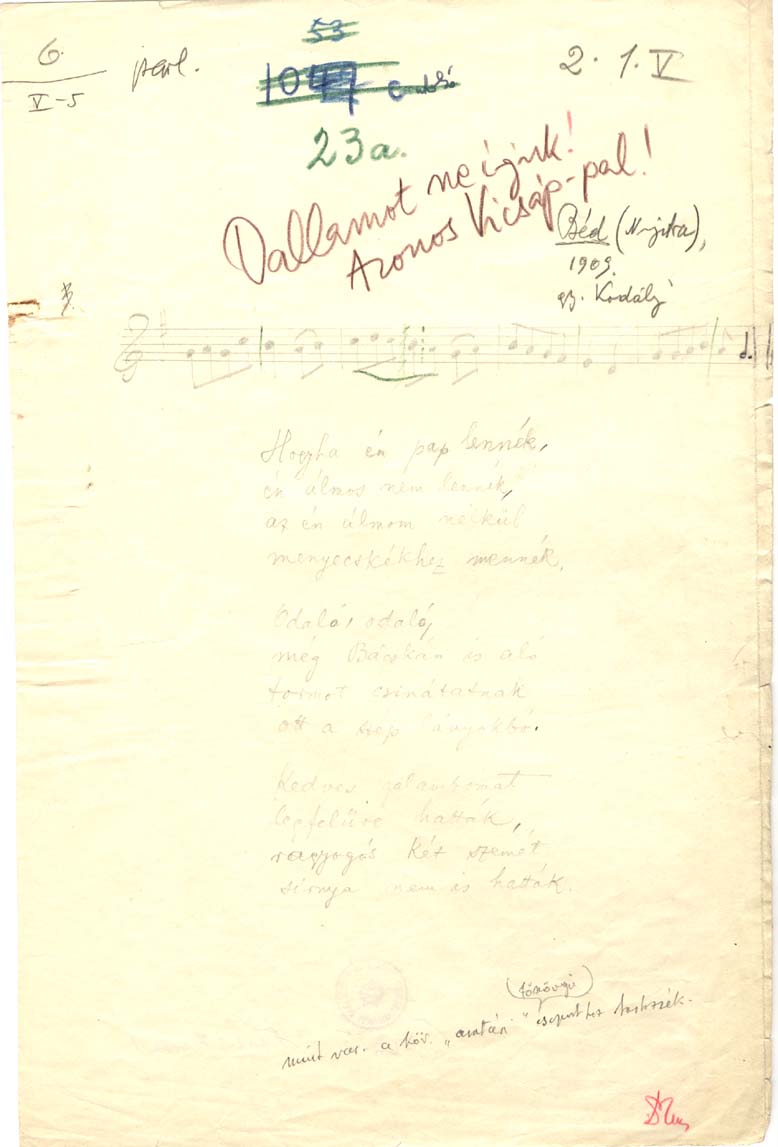 6.
V-5
parl.
53
1047
23a.
2. 1. V
Dallamot ne írjuk!
Azonos Vicsáp-pal!
Béd (Nyitra),
1909.
gy. Kodály
Hogyha én pap lennék,
én álmos nem lennék,
az én álmom nélkül
menyecskékhez mennék.
Odaló, odaló,
még Bácskán is aló
tormot csinátatnak
ott a szep lányokbó.
Kedves galambomat
legfelűre hatták,
ragyogós két szemét
sírnya nem is hatták.
mint var. a köv.